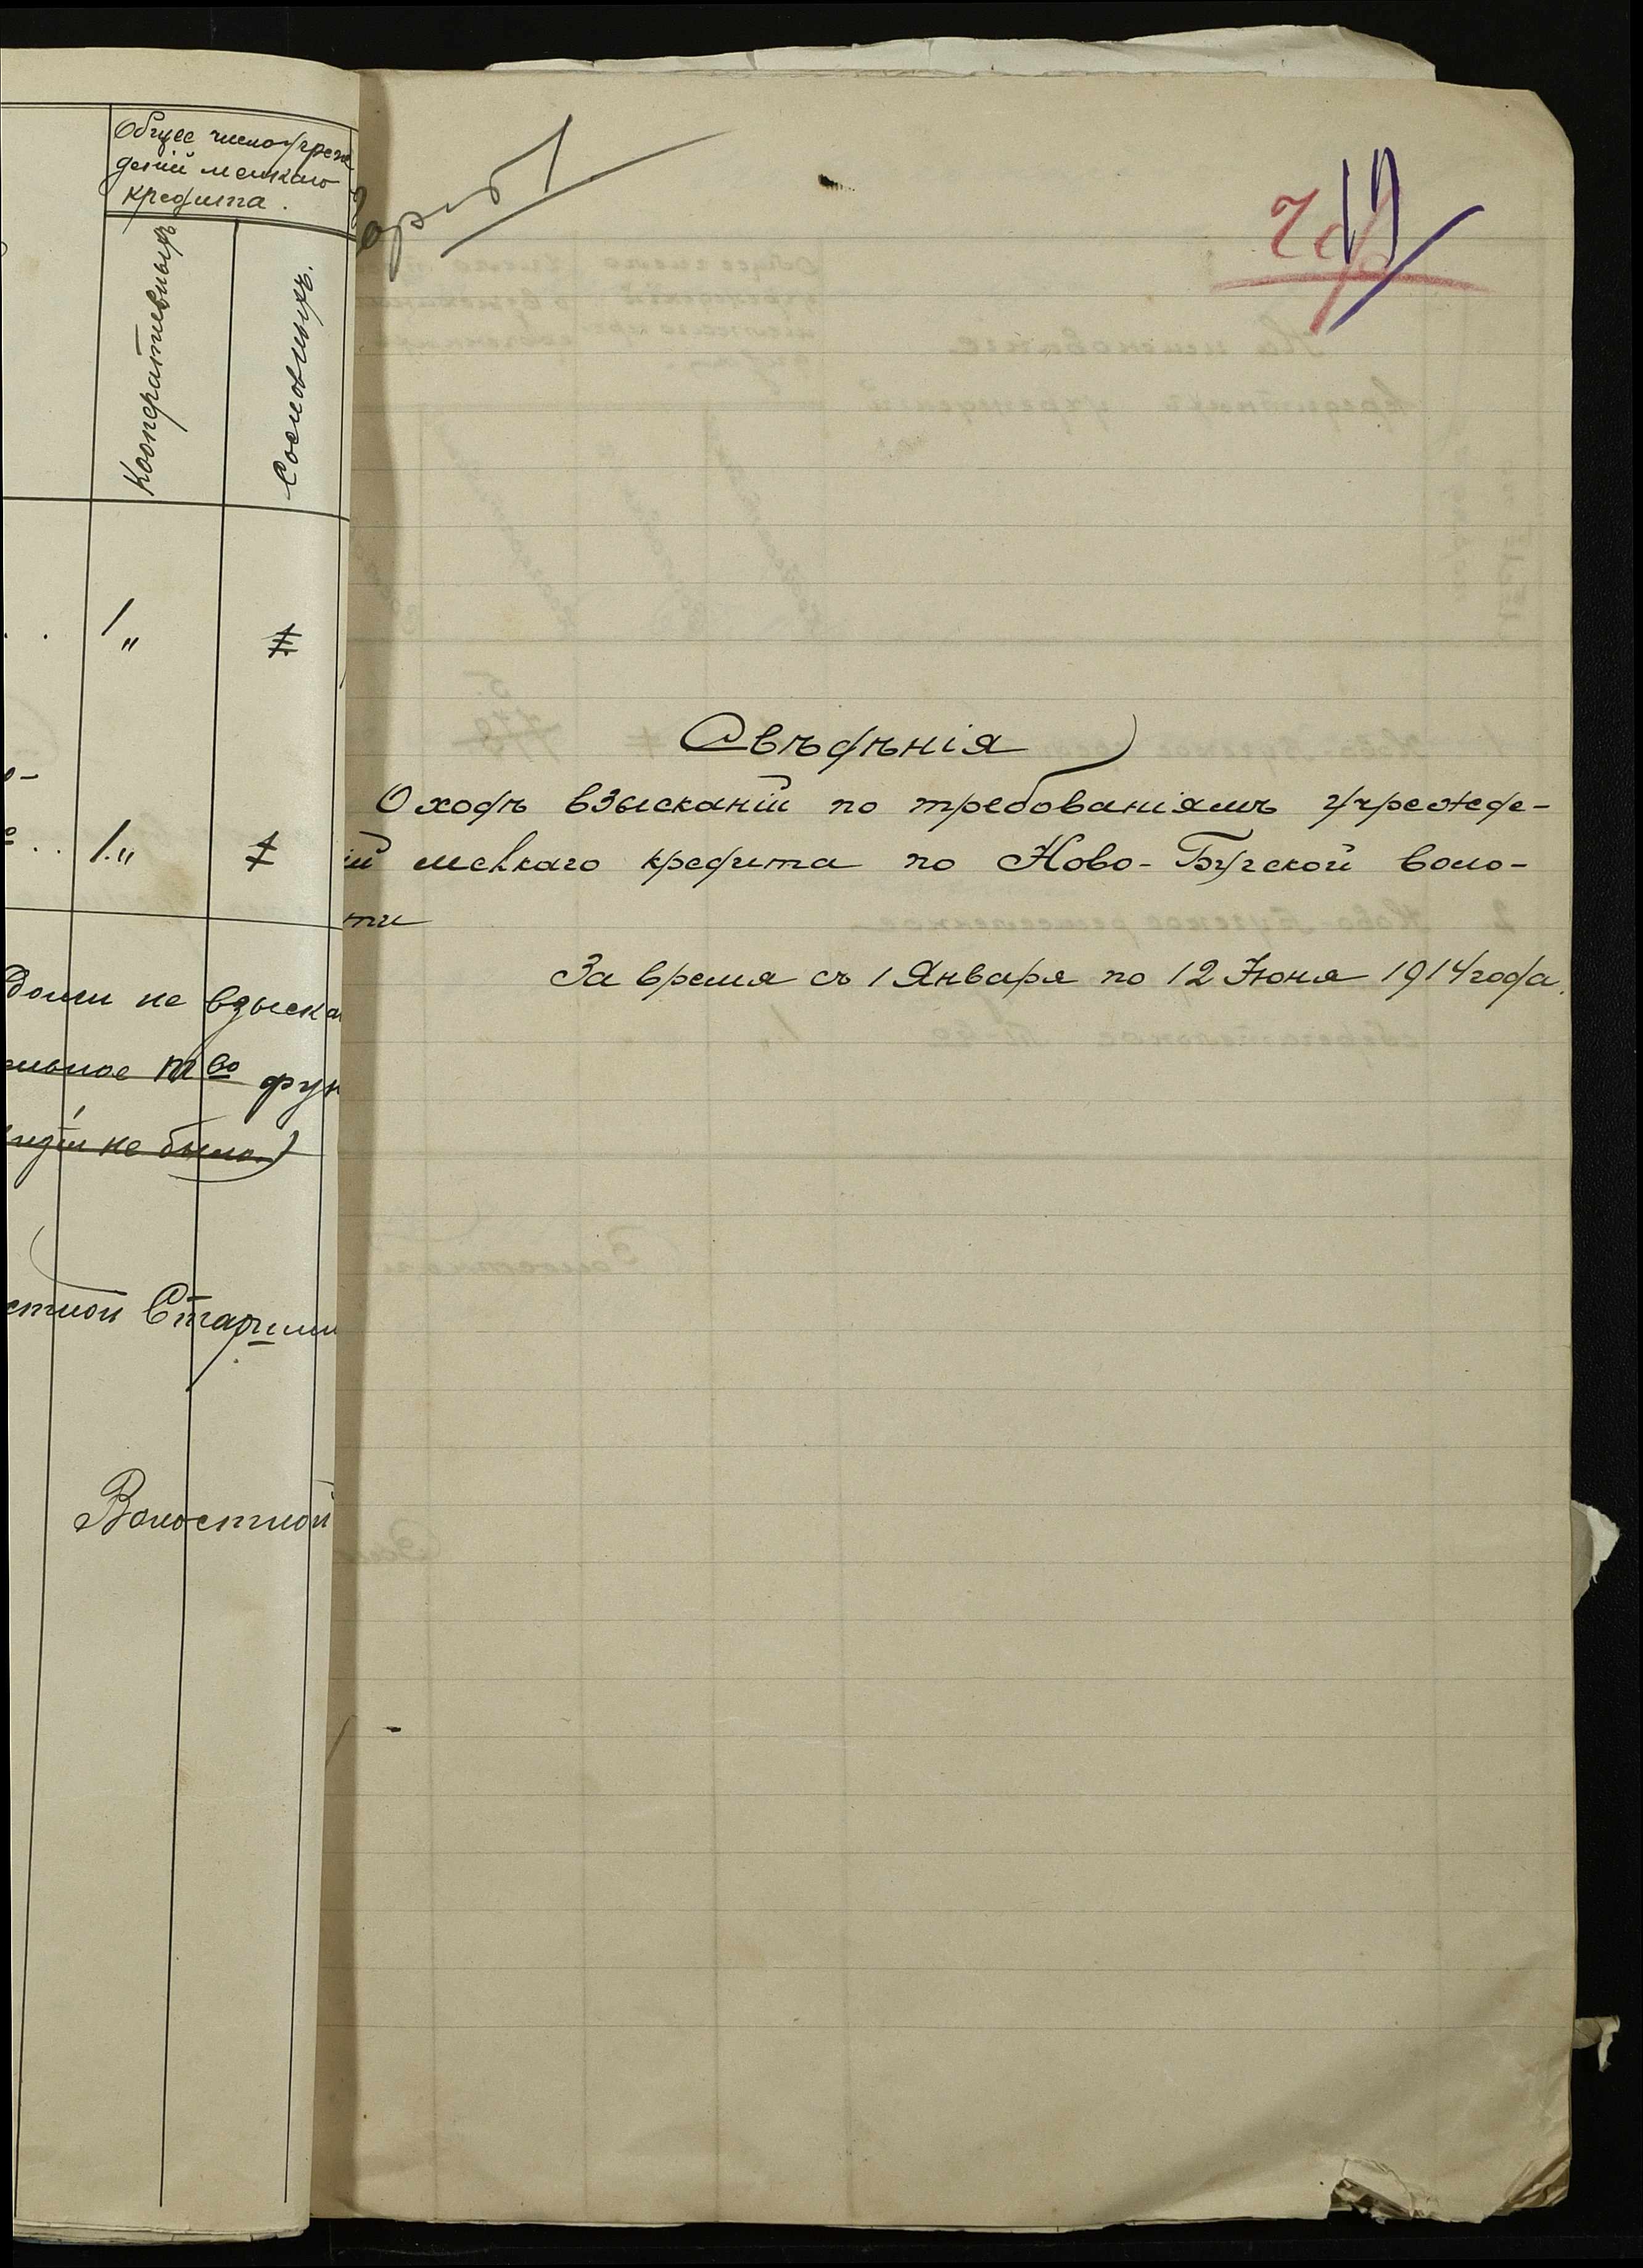 Общее число учреж
деній мелкаго
кредита.
Кооперативныхъ
Сословныхъ.
1 "
1. "
взыска
тво
не было)
Старшин
Волостной
19
Свѣдѣнія
О ходѣ взысканій по требованіямъ учрежде-
ій мелкаго кредита по Ново-Бугской воло-
сти
За время съ 1 Января по 12 Іюня 1914 года.